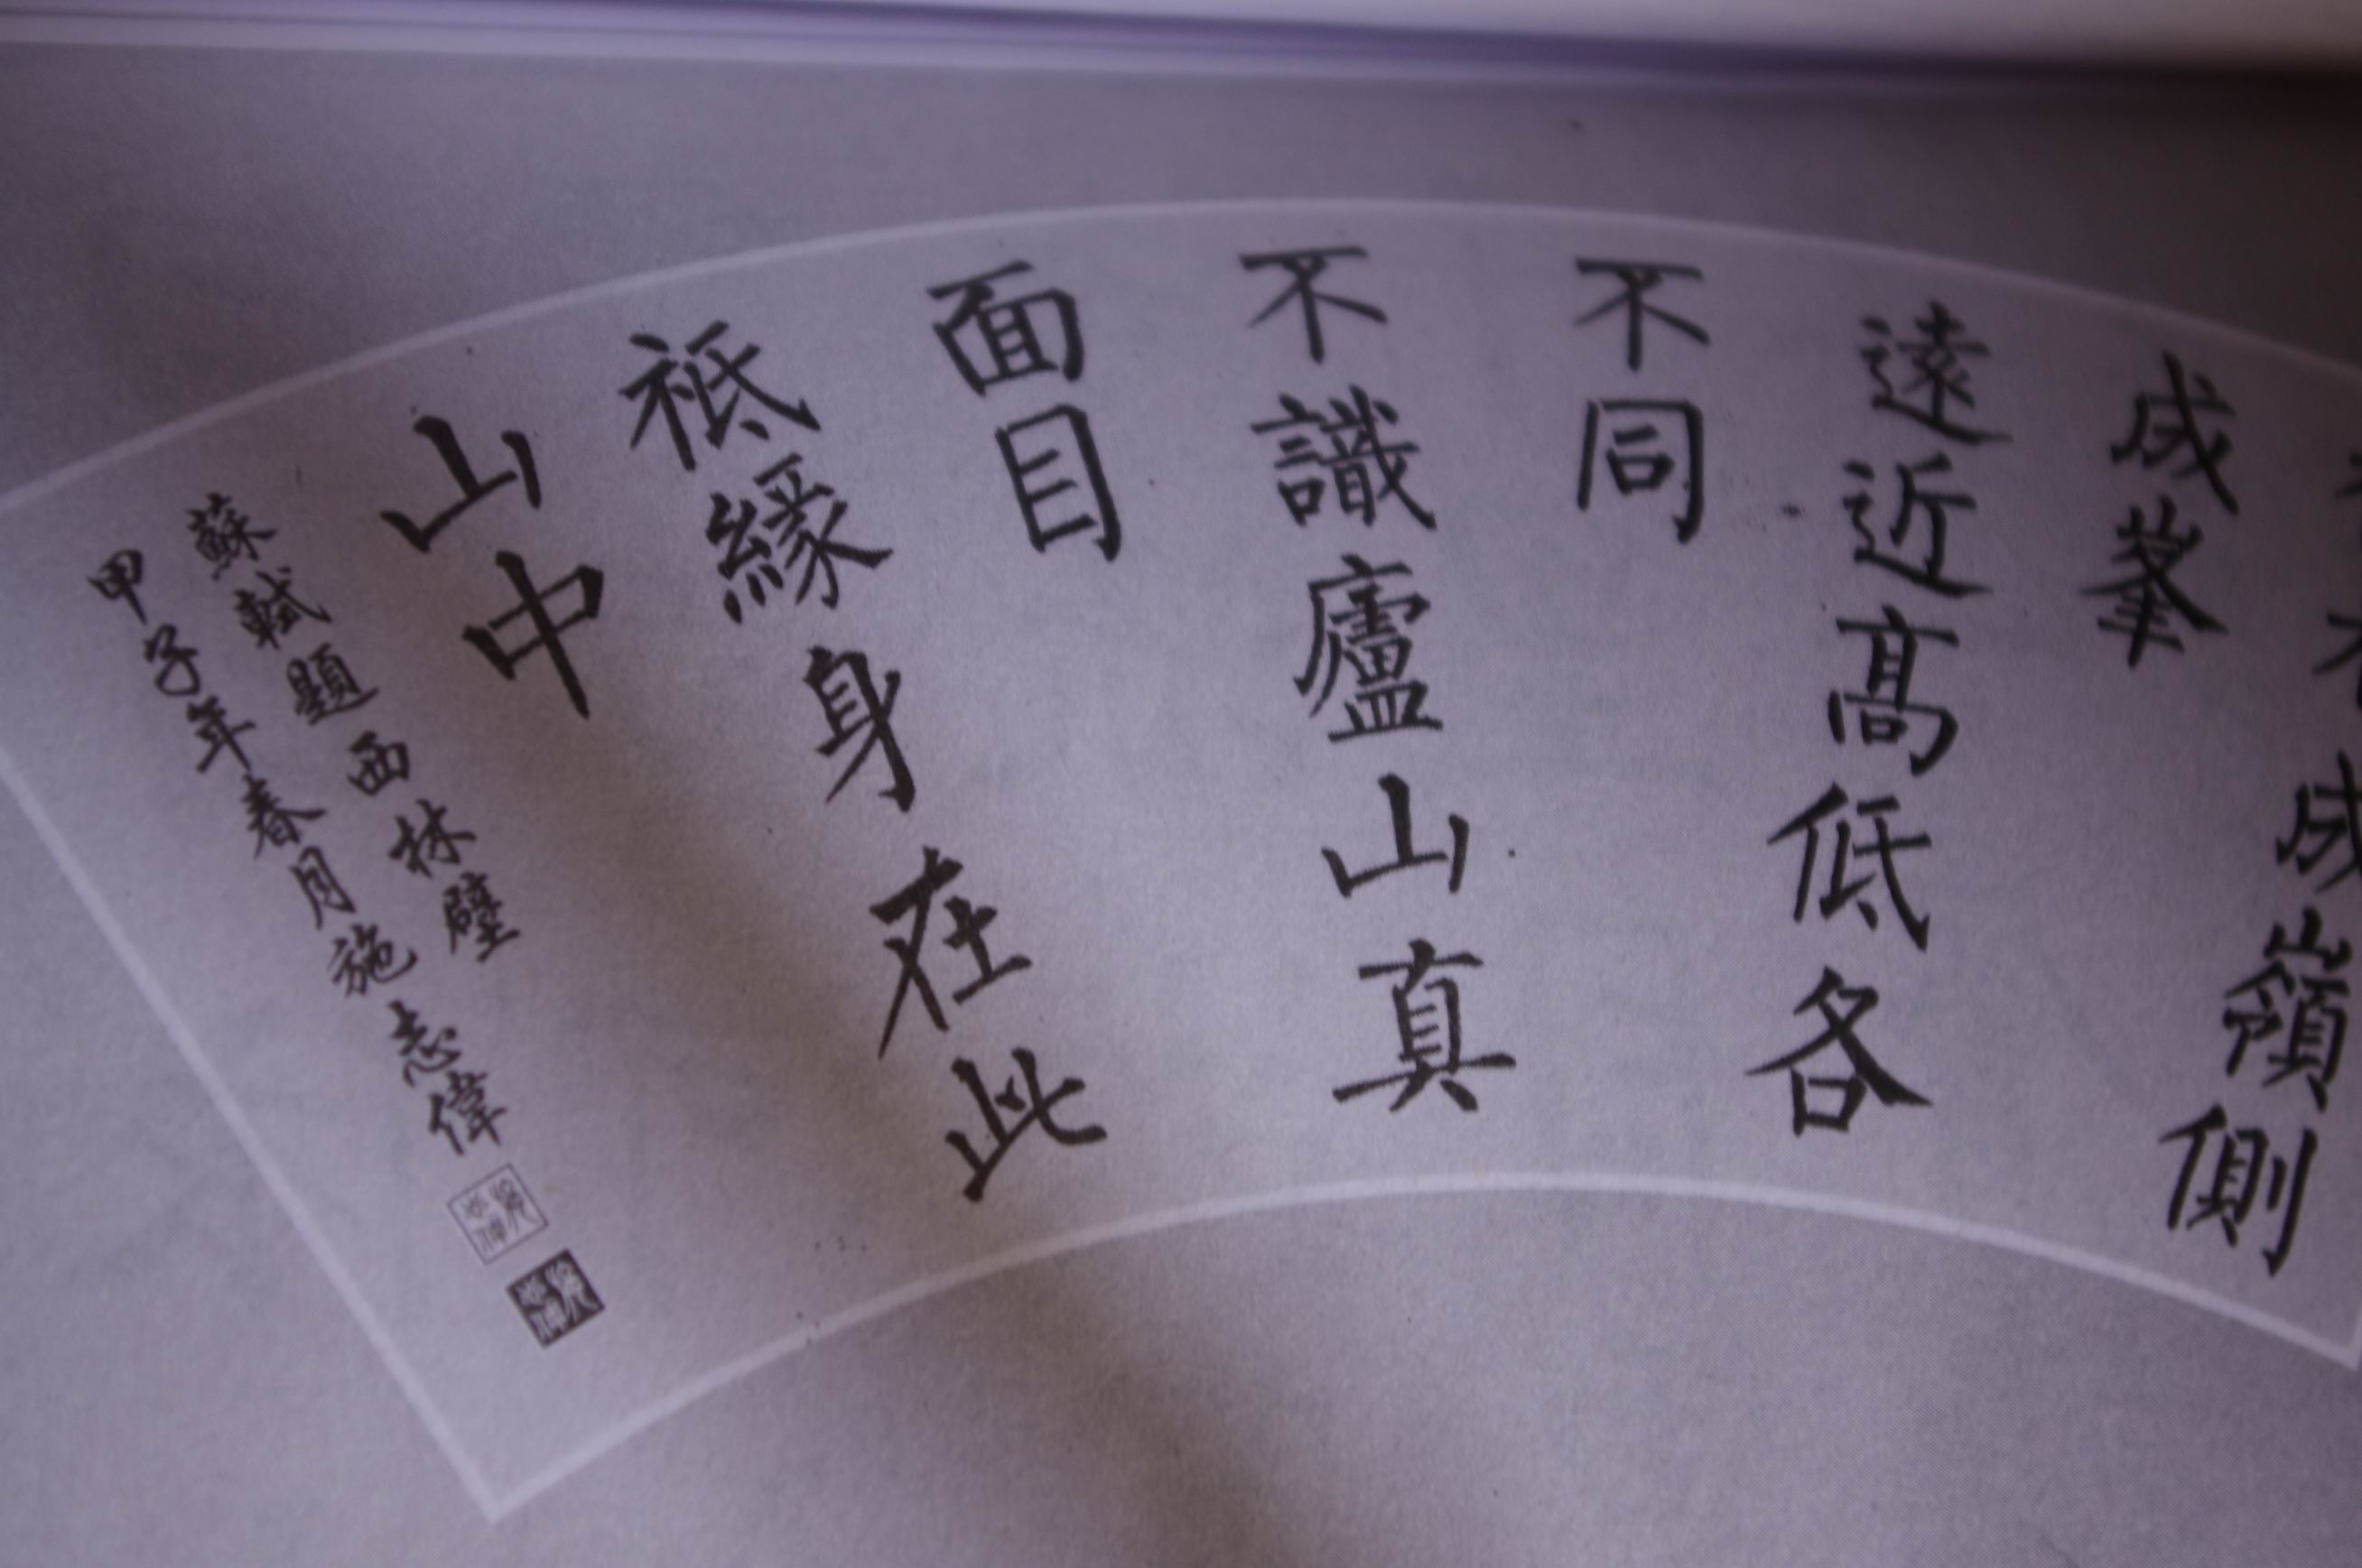 成嶺側
成峯
遠近高低各
不同
不識廬山真
面目
祗緣身在此
山中
蘇軾題西林壁
甲子年春月施志偉